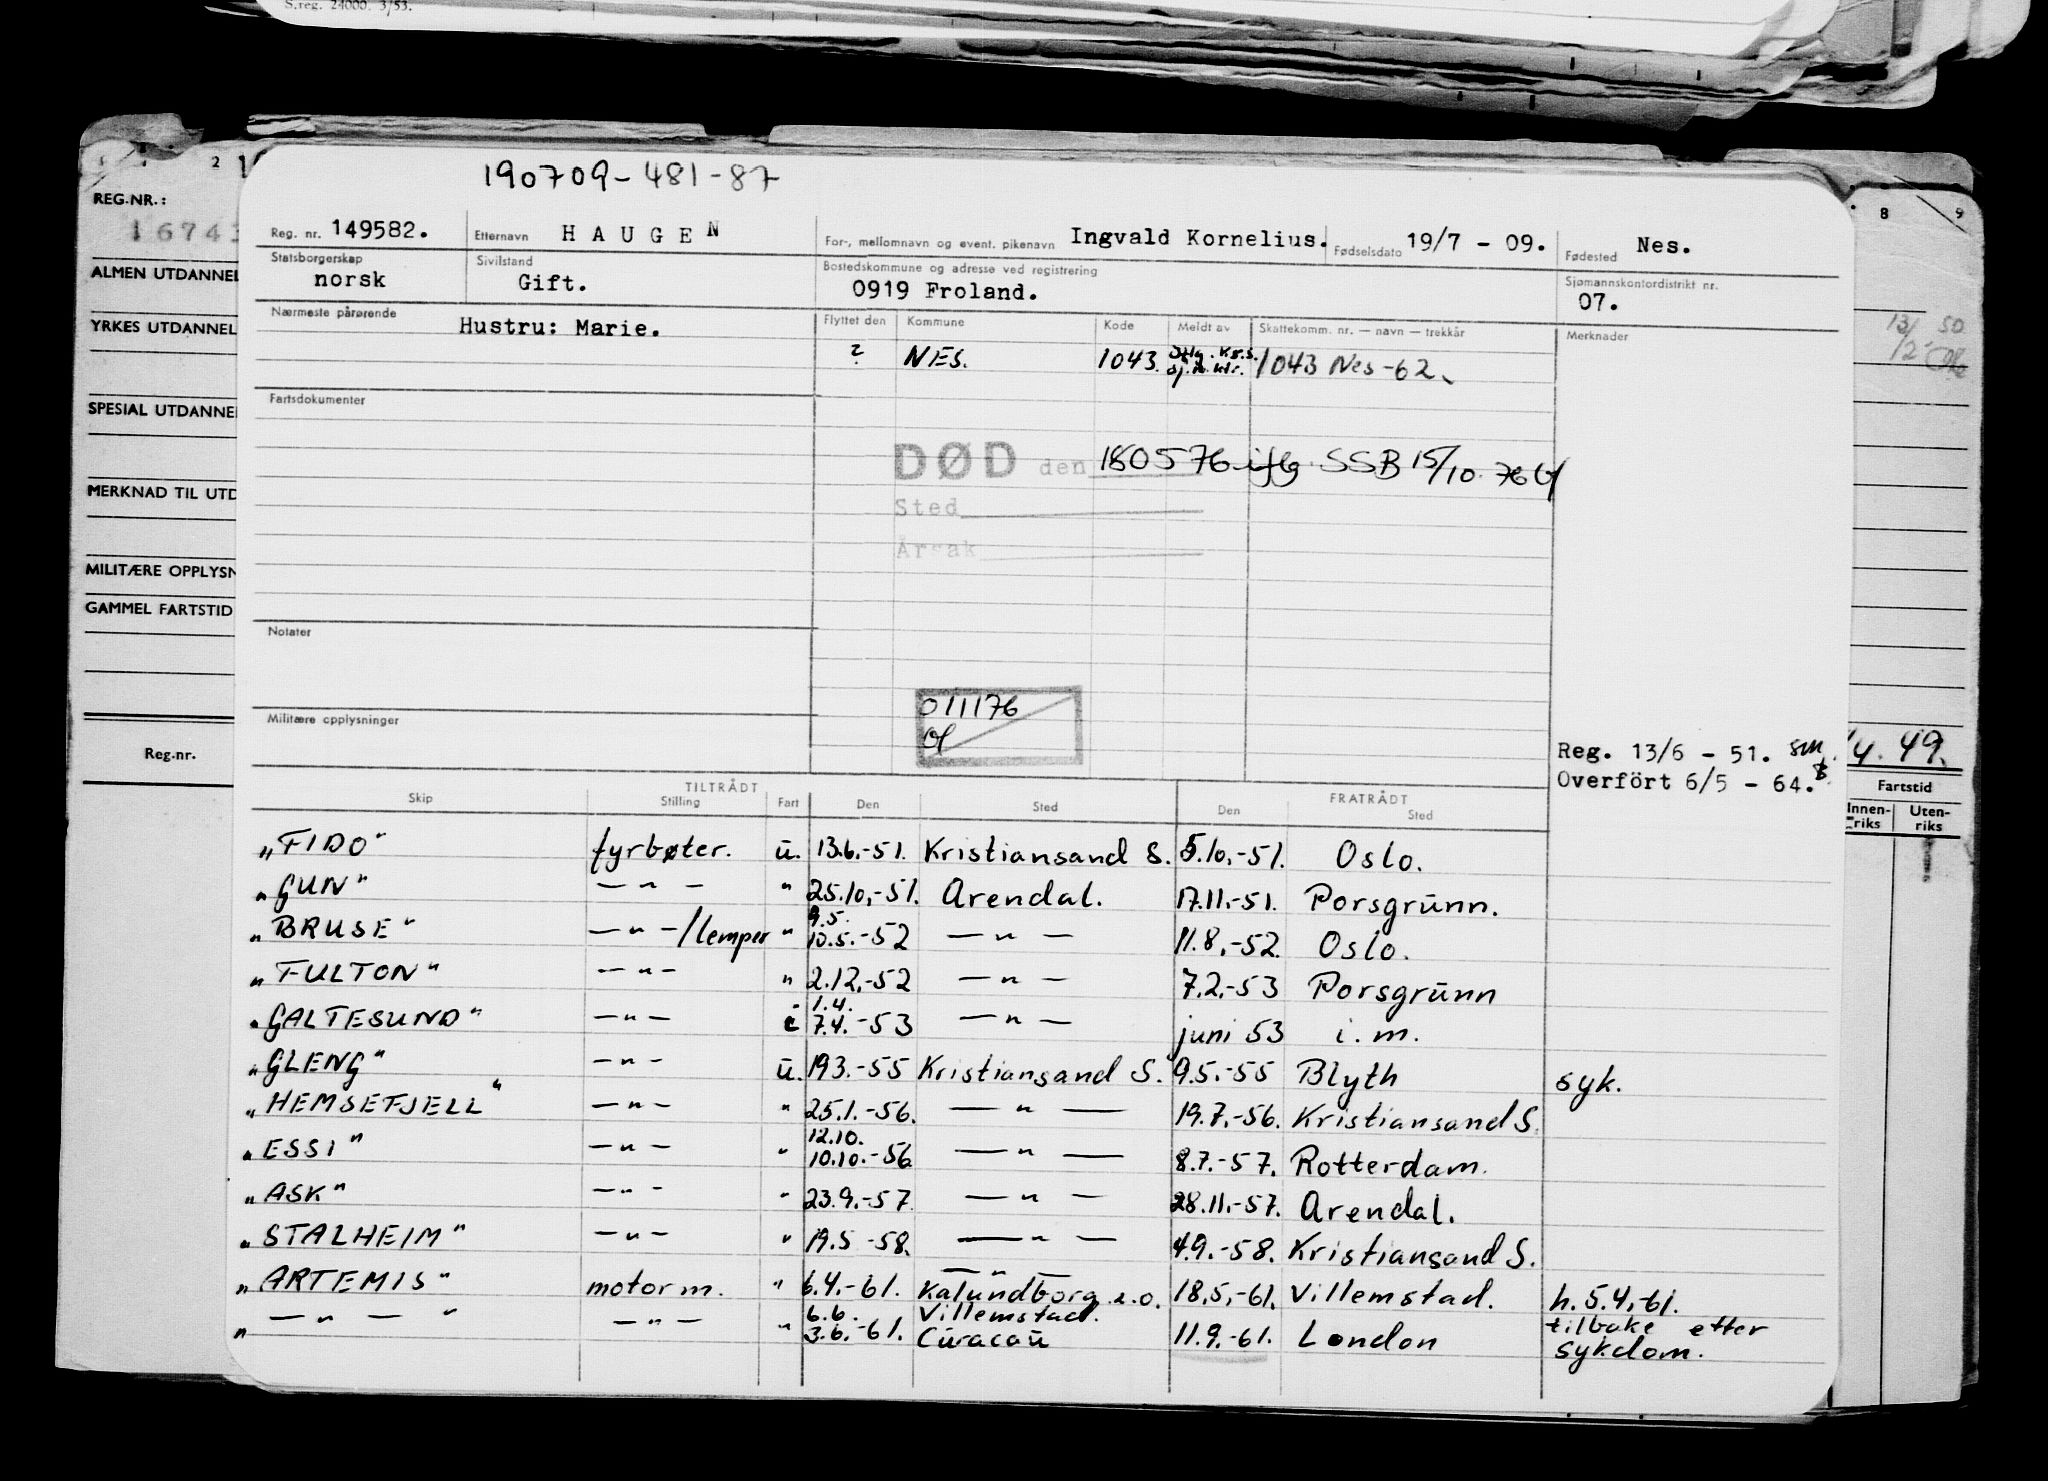 S.reg. 24000. 3/53.
2
8 9
190709-481-87
REG.NR.:
Reg. nr. 149582. Etternavn HAUGEN For-, mellomnavn og event. pikenavn Ingvald Kornelius. Fødselsdato 19/7 - 09. Fødested Nes.
Statsborgerskap norsk Sivilstand Gift. Bostedskommune og adresse ved registrering 0919 Froland. Sjømannskontordistrikt nr. 07.
ALMEN UTDANNEL
Nærmeste pårørende Hustru: Marie. Flyttet den Kommune Kode Meldt av Skattekomm. nr. — navn — trekkår Merknader
YRKES UTDANNEL
13/ 50
? NES. 1043. 1043 Nes-62.
Fartsdokumenter
SPESIAL UTDANNE
DØD den 180576 iflg. SSB 15/10. 76
MERKNAD TIL UTD
Sted
Årsak
MILITÆRE OPPLYSN
GAMMEL FARTSTID
Notater
011176
Militære opplysninger
Reg.nr.
Reg. 13/6 - 51.
4. 49.
Overfört 6/5 - 64.
Fartstid
Innen-riks Uten-riks
TILTRÅDT FRATRÅDT
Skip Stilling Fart Den Sted Den Sted
"FIDO" fyrbøter. u. 13.6.-51. Kristiansand S. 5.10.-51. Oslo.
"GUN" — " — " 25.10.-51. Arendal. 17.11.-51. Porsgrunn.
9.5.
"BRUSE" — " —/lemper " 10.5.-52 — " — 11.8.-52. Oslo.
"FULTON" — " — " 2.12.-52 — " — 7.2.-53 Porsgrunn
1.4.
"GALTESUND" — " — i 7.4.-53 — " — juni 53 i.m.
"GLENG" — " — u. 193.-55 Kristiansand S. 9.5.-55 Blyth syk.
"HEMSEFJELL" — " — " 25.1.-56. — " — 19.7.-56. Kristiansand S.
12.10.
"ESSI" — " — " 10.10.-56 — " — 8.7.-57. Rotterdam.
"ASK" — " — " 23.9.-57. — " — 28.11.-57. Arendal.
"STALHEIM" — " — " 19.5-58. — " — 4.9.-58. Kristiansand S.
— " —
"ARTEMIS" motorm. " 6.4.-61. Kalundborg 18.5.-61. Villemstad. h.5.4.-61.
6.6. Villemstad. tilbake etter
" — — — " — " — " 3.6.-61. Curacau 11.9.-61. London sykdom.